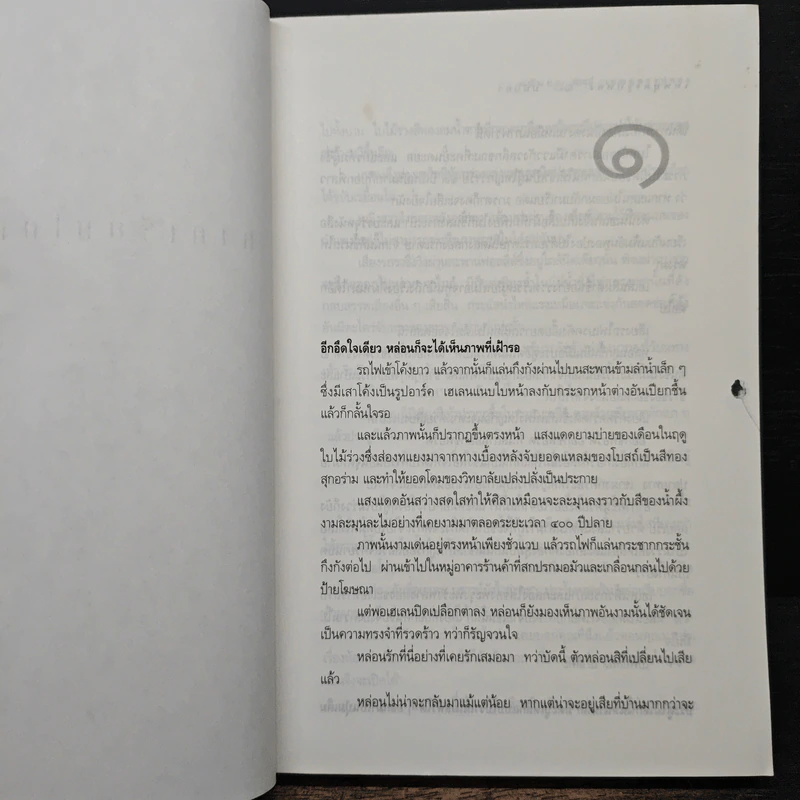 ๑
อีกอึดใจเดียว หล่อนก็จะได้เห็นภาพที่เฝ้ารอ
รถไฟเข้าโค้งยาว แล้วจากนั้นก็แล่นกึงกังผ่านไปบนสะพานข้ามลำน้ำเล็ก ๆ
ซึ่งมีเสาโค้งเป็นรูปอาร์ค เฮเลนแนบใบหน้าลงกับกระจกหน้าต่างอันเปียกชื้น
แล้วก็กลั้นใจรอ
และแล้วภาพนั้นก็ปรากฏขึ้นตรงหน้า แสงแดดยามบ่ายของเดือนในฤดู
ใบไม้ร่วงซึ่งส่องทแยงมาจากทางเบื้องหลังจับยอดแหลมของโบสถ์เป็นสีทอง
สุกอร่าม และทำให้ยอดโดมของวิทยาลัยเปล่งปลั่งเป็นประกาย
แสงแดดอันสว่างสดใสทำให้ศิลาเหมือนจะละมุนลงราวกับสีของน้ำผึ้ง
งามละมุนละไมอย่างที่เคยงามมาตลอดระยะเวลา ๔๐๐ ปีปลาย
ภาพนั้นงามเด่นอยู่ตรงหน้าเพียงชั่วแวบ แล้วรถไฟก็แล่นกระชากกระชั้น
กึงกังต่อไป ผ่านเข้าไปในหมู่อาคารร้านค้าที่สกปรกมอมัวและเกลื่อนกล่นไปด้วย
ป้ายโฆษณา
แต่พอเฮเลนปิดเปลือกตาลง หล่อนก็ยังมองเห็นภาพอันงามนั้นได้ชัดเจน
เป็นความทรงจำที่รวดร้าว ทว่าก็รัญจวนใจ
หล่อนรักที่นี่อย่างที่เคยรักเสมอมา ทว่าบัดนี้ ตัวหล่อนสิที่เปลี่ยนไปเสีย
แล้ว
หล่อนไม่น่าจะกลับมาแม้แต่น้อย หากแต่น่าจะอยู่เสียที่บ้านมากกว่าจะ